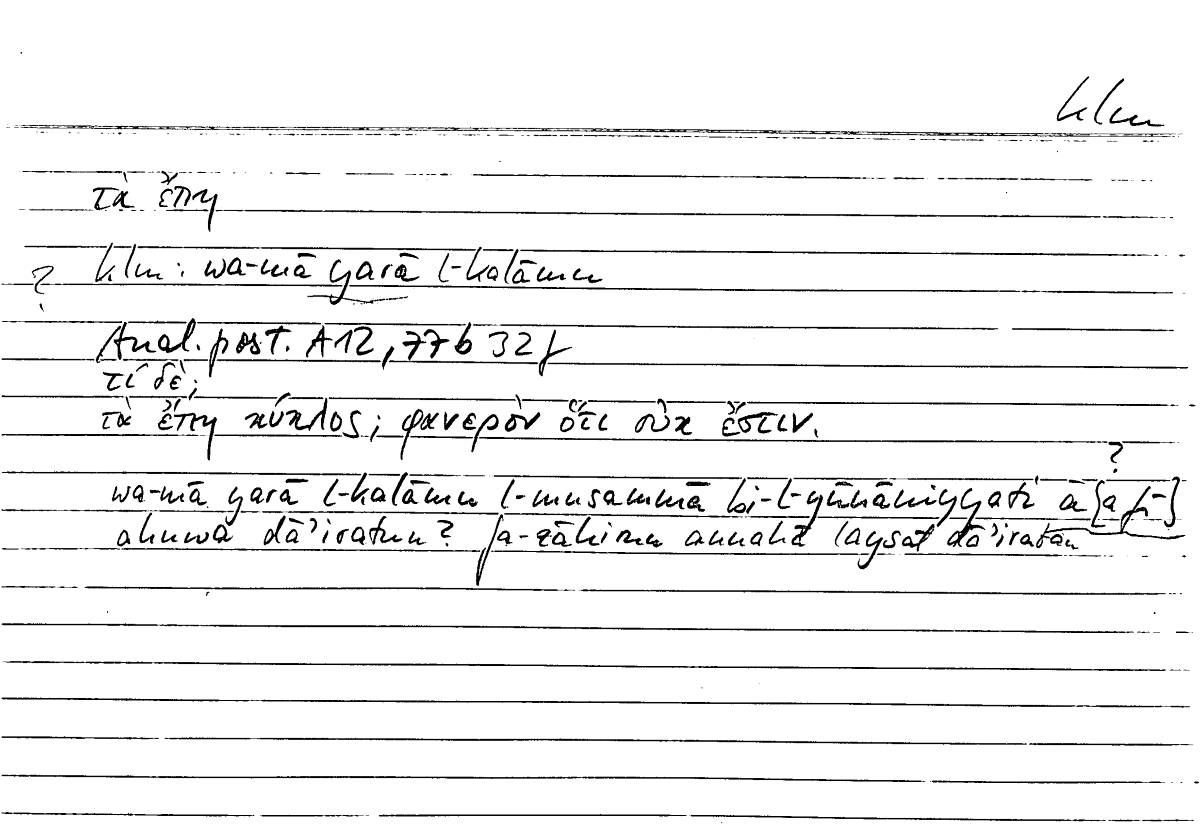 klm
τὰ ἔπη
? klm: wa-mā yarā l-kalāmu
Anal. post. A 12, 77b 32f
τί δέ;
τὰ ἔπη κύκλος; φανερὸν ὅτι οὐκ ἔστιν.
?
wa-mā yarā l-kalāmu l-musammā bi-l-yūnāniyyati ā[afī]
ahuwa dā'iratun? fa-ẓāhirun annahā laysat dā'iratan